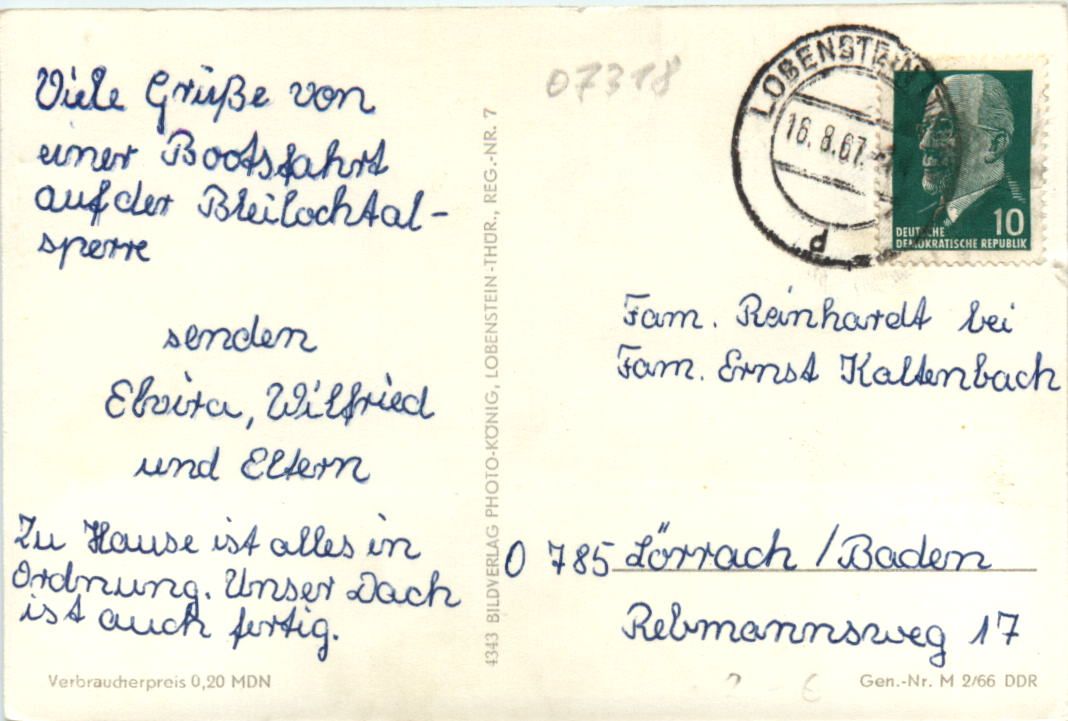 Viele Grüße von
einer Bootsfahrt
auf der Bleilochtal-
sperre
senden
Elvira, Wilfried
und Eltern
Zu Hause ist alles in
Ordnung. Unser Dach
ist auch fertig.
Verbraucherpreis 0,20 MDN
4343 BILDVERLAG PHOTO-KÖNIG, LOBENSTEIN-THÜR., REG.-NR. 7
07318
LOBENSTEIN
16.8.67.
P
10
DEUTSCHE
DEMOKRATISCHE REPUBLIK
Fam. Reinhardt bei
Fam. Ernst Kaltenbach
O 785 Lörrach / Baden
Rebmannsweg 17
Gen.-Nr. M 2/66 DDR